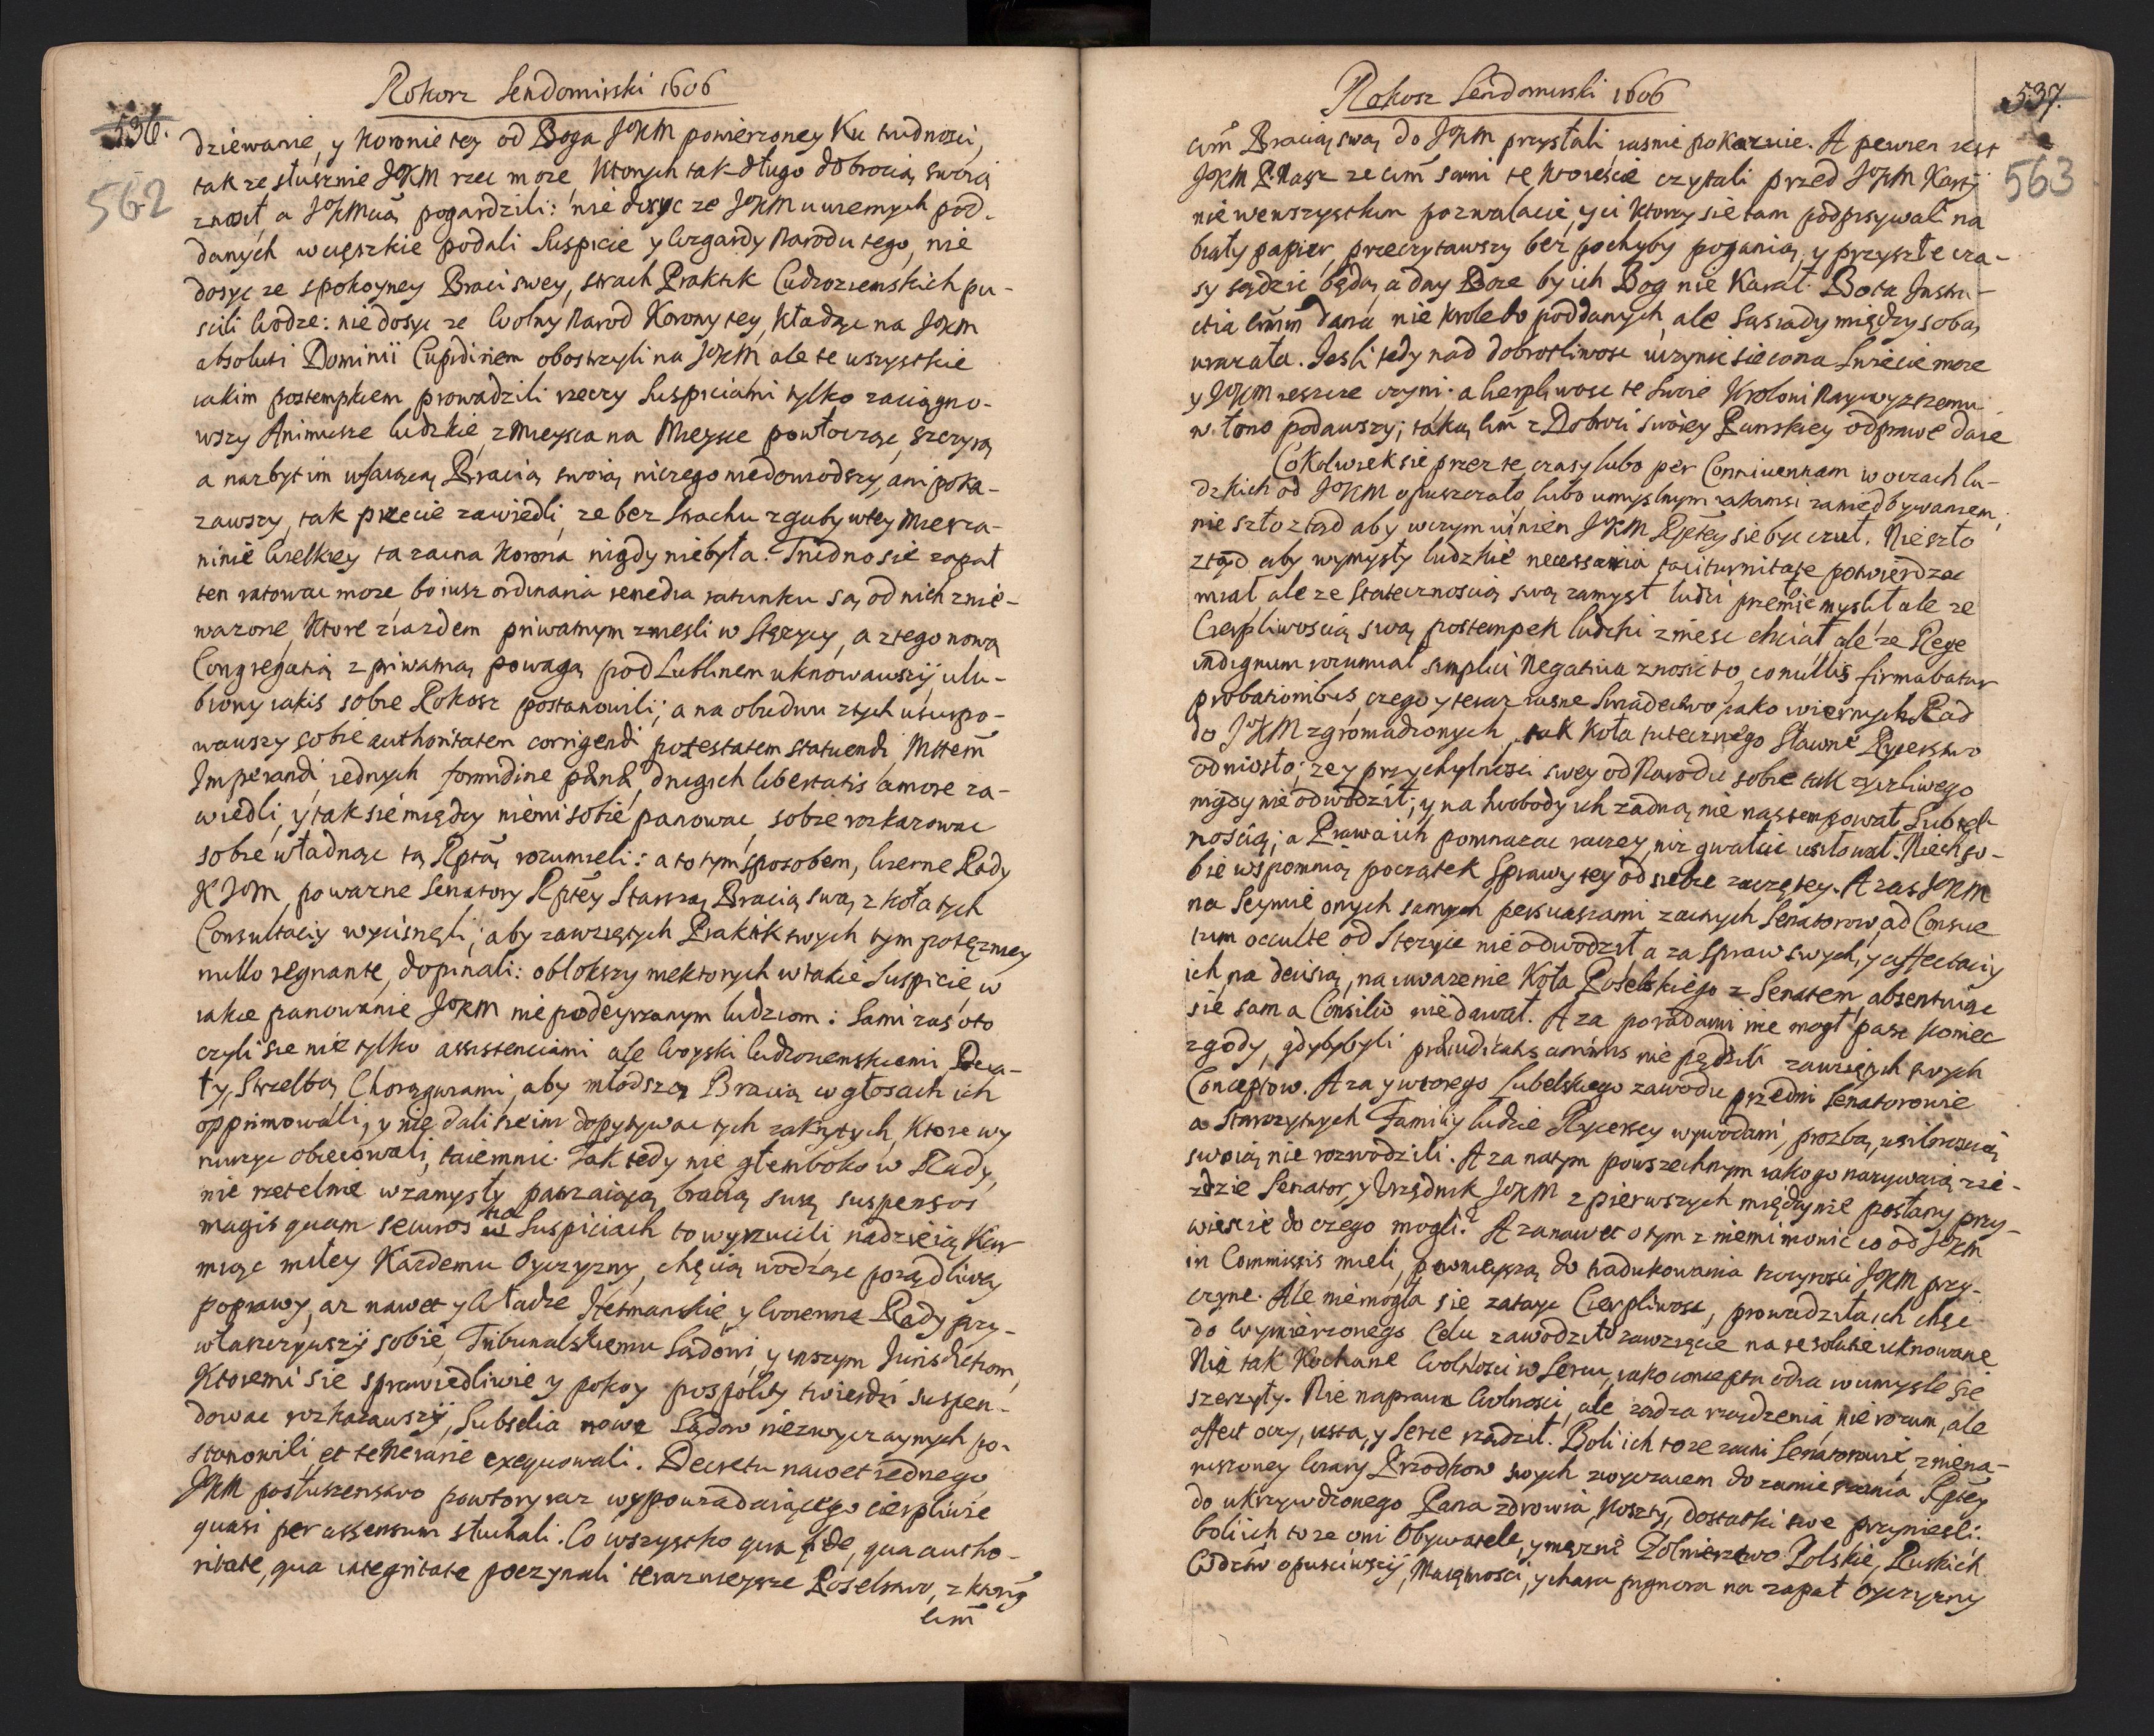 Rokosz Sendomirski 1606
536.
562
dziewanie, y Koronie tey od Boga JoKM powierzoney Ku trudnosci,
tak ze słusznie JKM rzec moze, Ktorych tak długo dobrocią swoią
znosił, a JoKMcią pogardzili: nie dosyc ze JoKM u wiernych pod-
danych w cięszkie podali Suspicie y wzgardy Narodu tego, nie
dosyc ze spokoyney Braci swey, strach Praktik Cudzoziemskich pu-
scili wodze: nie dosyc ze Wolny Narod Korony tey, Kładąc na JoKM
absoluti Dominii Cupidinem obostrzyli na JoKM ale te wszystkie
iakim postempkiem prowadzili rzeczy Suspiciami tylko zaciągno-
wszy Animusze ludzkie, z Mieysca na Mieysce powłocząc, szczyrą
a nazbyt im ufaiącą Bracią swoią niczego niedowodszy, ani poka-
zawszy, tak przecie zawiedli, ze bez strachu zguby w tey Miesza-
ninie wielkiey ta zacna Korona nigdy niebyła. Trudno sie zapał
ten ratowac moze, bo iusz ordinaria remedia ratunku są od nich znie-
wazone, Ktore ziazdem priwatnym zniesli w Stęzycy, a z tego nową
Congregatią z priwatną powagą pod Lublinem uknowawszy, ulu-
biony iakis sobie Rokosz postanowili; a na obudwu ztych usurpo-
wawszy sobie authoritatem corrigendi potestatem statuendi Mttem
Imperandi, iednych formidine pana, drugich libertatis amore za-
wiedli, y tak sie między niemi sobie panowac, sobie rozkazowac
sobie władnąc tą Rptą rozumieli: a to tym sposobem, wierne Rady
KJoM, powazne Senatory Rptey Starszą Bracią swą z Koła tych
Consultaciy wycisnęli; aby zawziętych Praktik swych tym potęzniey
nullo regnante, dopinali: oblokszy niektorych w takie Suspicie, w
iakie panowanie JoKM nie podeyrzanym ludziom: Sami zas oto
czyli sie nie tylko assistenciami ale Woyski Cudzoziemskiemi
ty, Strzelbą, Chorągwiami, aby młodszą Bracią w głosach ich
opprimowali, y nie dali sie im dopytywac tych zakrytych, Ktore wy
nurzyc obiecowali, taiemnic. Tak tedy nie głemboko w Rady,
nie rzetelnie w zamysły patrzaiącą bracią swą suspensos
magis quam securos na Suspiciach to wyrzucili, nadzieią Kar
miąc miłey Kazdemu Oyczyzny, chęcią wodząc poządliwą
poprawy, az nawet y Władze Hetmanskie, y Woienne Rady przy-
własczywszy sobie, Tribunalskiemu Sądowi, y inszym Jurisdictiom,
Ktoremi sie sprawiedliwie y pokoy pospolity twierdzi suspen-
dowac rozkazawszy, Subselia nowe Sądow niezwyczaynych po-
stanowili, et temerarie exequowali. Decretu nawet iednego
JKM posłuszenstwo powtory raz wypowiadaiącego cierpliwie
quasi per assensum słuchali. Co wszystko qua fide, qua autho-
ritate, qua integritate poczynali teraznieysze Poselstwo, z Ktorÿ
Wm
Rokosz Sendomirski 1606
537.
563
Wm Bracią swą do JoKM przysłali iasnie pokazuie. A pewien iest
JoKM P Nasz ze Wm sami te Ktorescie czytali przed JoKM Karty
nie we wszystkim pozwalacie, y ci Ktorzy sie tam podpisywali na
biały papier, przeczytawszy bez pochyby poganią, y przyszłe cza-
sy sądzic będą, a day Boze by ich Bog nie Karał. Bo ta Instru-
ctia Wmm dana nie Krole to poddanych, ale Sąsiady między sobą
uwazała. Jesli tedy nad dobrotliwosc uczynic sie co na Swiecie moze
y JoKM ieszcze czyni. a Cierpliwosc te Swoie Krolowi Naywyzszemu
w łono podawszy; taką Wm z Dobroci swoiey Panskiey odprawe daie
Cokolwiek sie przez te czasy lubo per Conniventiam w oczach lu-
dzkich od JoKM opuszczało, lubo umyslnym iakimsi zaniedbywaniem,
nie szło ztąd aby w czym winien JoKM Rptey sie byc czuł. Nie szło
ztąd aby wymysły ludzkie necessaria taciturnitate potwierdzac
miał, ale ze Statecznoscią swą zamysł ludzi przemyslił ale ze
Cierpliwoscią swą postempek ludzki zniesc chciał, ale ze Rege
indignum rozumiał simplici Negativa znosic to, co nullis firmabatur
probationibus, czego y teraz iasne Swiadectwo, iako wiernych Rad
do JoKM zgromadzonych, tak Koła tutecznego Sławne Rycerstwo
odniosło; ze y przychylnosci swey od Narodu sobie tak zyczliwego
nigdy nie odwodził; y na swobody ich zadną nie nastempował Subtel-
noscią; a Prawa ich pomnazac raczey, niz gwałcic usiłował. Niech so-
bie wspomnią początek sprawy tey od siebie zaczętey. A zas JoKM
na Seymie onych samych perswaziami zacnych Senatorow, ad Consue
tum occulte od Stęzyce nie odwodził, a za spraw swych, y affectaciy
ich na decisią, na uwazenie Koła Poselskiego z Senatem, absentuiąc
sie sam a Consilio nie dawał. A za poradami nie mogł pasc koniec
zgody, gdyby byli praeiudicatis animis nie pędzili zawziętych swych
Conceptow. A za y wtorego Lubelskiego zawodu przedni Senatorowie
a Starozytnych Familiy ludzie Rycerscy wywodami, prozbą, usilnoscią
swoią nie rozwodzili. A za na tym powszechnym iako go nazywaią zie-
zdzie Senator, y Urzędnik JoKM z pierwszych między nie posłany przy-
wiescie do czego mogli? A za nawet o tym z niemi mowic co od JoKM
in Commissis mieli, pewnieyszą do tradukowania szczyrosci JoKM przy-
czyne. Ale nie mogła sie zataic Cierpliwosc, prowadziła ich chęc
do wymierzonego Celu zawodziło zawzięcie na resolutie uknowane
Nie tak Kochane Wolnosci w Sercu, iako conceptu odra w umysle sie
szerzyły. Nie naprawa Wolnosci, ale zadza rządzenia, nie rozum, ale
affect oczy, usta, y Serce rządził. Boli ich to ze zacni Senatorowie z niena-
ruszoney Wiary Przodkow swych zwyczaiem do zamieszania Rptey
do ukrzywdzonego Pana zdrowia, Koszty, dostatki swe przyniesli.
boli ich to ze oni Obywatele, y męzne Zołnierstwo Polskie, Ruskich
Wodzow opusciwszy, Maiętnosci, y chara pignora na zapał Oyczyzny